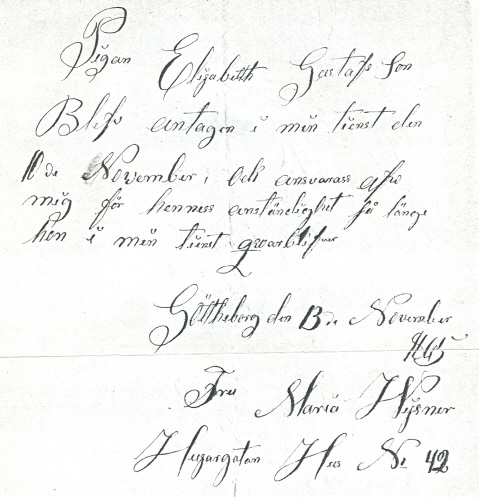 Pigan Elizabetth Gustafs Son
Blefv antagen i min tienst den
10de November, och ansvarass afv
mig för henness anständighet så länge
hon i min tienst qvarblifver
Göttheborg den 13de November
Fru Maria Wysner
Husargatan Hus No 42